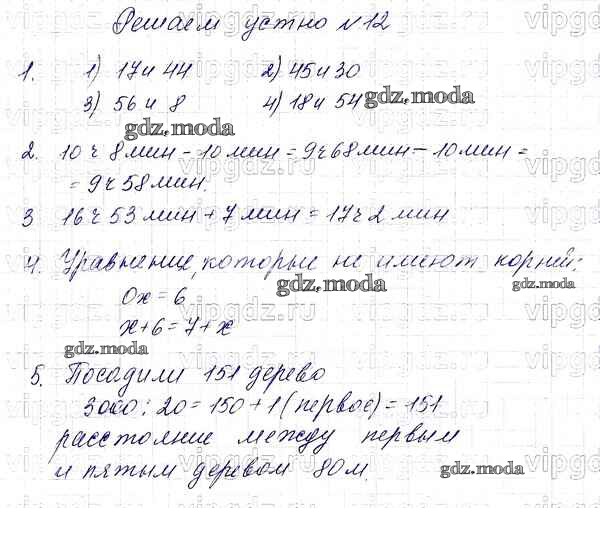 Решаем устно №12
1. 1) 17 и 44 2) 45 и 30
3) 56 и 8 4) 18 и 54 gdz.moda
gdz.moda
2. 10 ч 8 мин – 10 мин = 9 ч 68 мин – 10 мин =
= 9 ч 58 мин.
3 16 ч 53 мин + 7 мин = 17 ч 2 мин
4. Уравнение, которые не имеют корней:
gdz.moda gdz.moda
0x = 6
x + 6 = 7 + x
gdz.moda
5. Посадили 151 дерево
3000 : 20 = 150 + 1 (первое) = 151
расстояние между первым
и пятым деревом 80 м.
gdz.moda